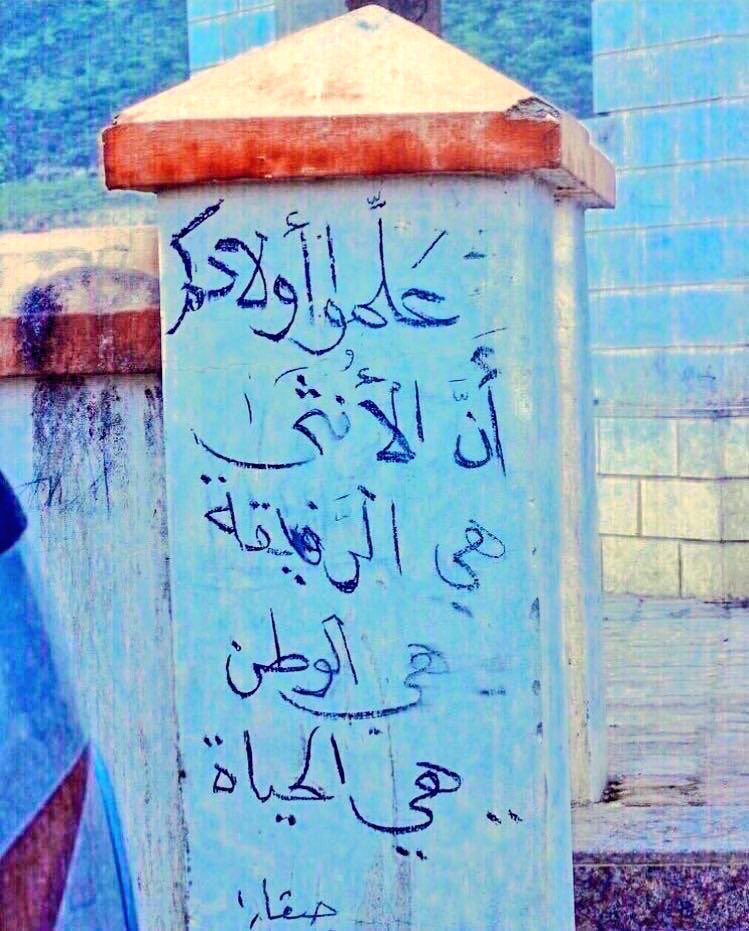 علّموا أولادكم
أَنَّ الأُنثى
هي الرَفيقة
هي الوطن
هي الحياة ..
صقار